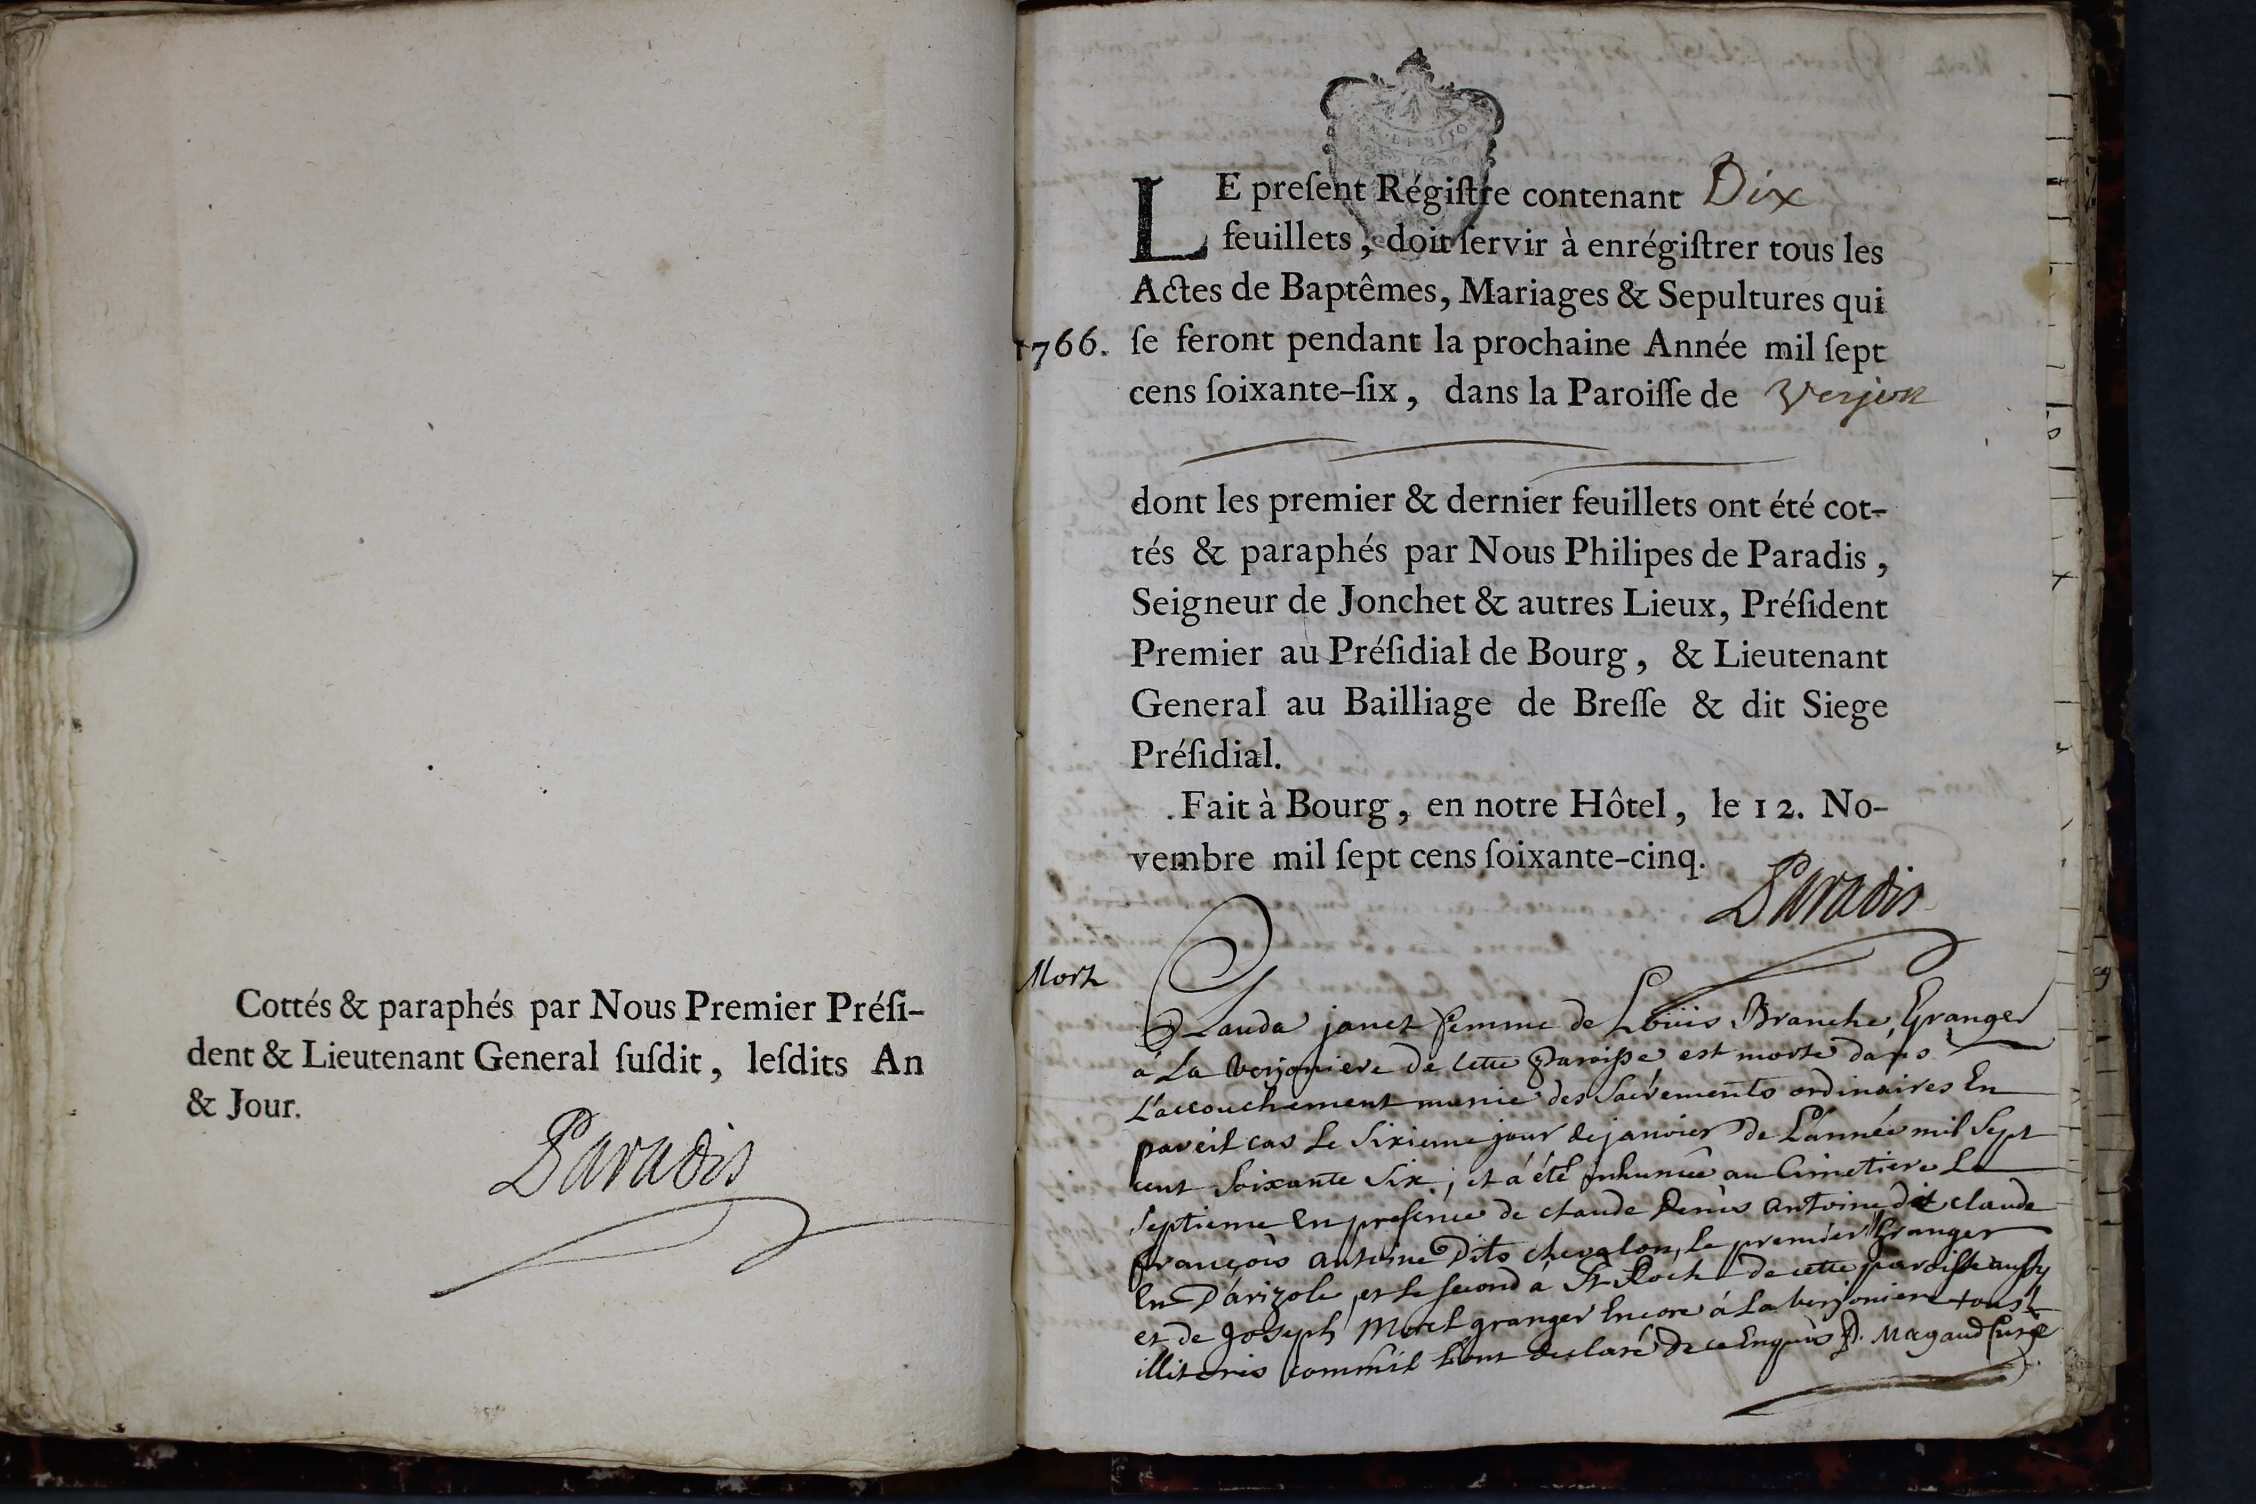 Cottés & paraphés par Nous Premier Préſi-
dent & Lieutenant General ſuſdit, leſdits An
& Jour.
Paradis
LE preſent Régiſtre contenant Dix
feuillets, doit ſervir à enrégiſtrer tous les
Actes de Baptêmes, Mariages & Sepultures qui
1766. ſe feront pendant la prochaine Année mil ſept
cens ſoixante-ſix, dans la Paroiſſe de Verjon
dont les premier & dernier feuillets ont été cot-
tés & paraphés par Nous Philipes de Paradis,
Seigneur de Jonchet & autres Lieux, Préſident
Premier au Préſidial de Bourg, & Lieutenant
General au Bailliage de Breſſe & dit Siege
Préſidial.
Fait à Bourg, en notre Hôtel, le 12. No-
vembre mil ſept cens ſoixante-cinq.
Paradis
Mort
Clauda janet femme de Loüis Branche, Granger
á La verjoniere de cette Paroisse est morte dans
L'accouchement munie des Sacrements ordinaires En
pareil cas Le Sixieme jour de janvier de L'année mil Sept
cent Soixante Six; et á été inhumée au Cimetiere Le
Septieme En presence de claude Denis antoine dit claude
françois antoine Dits chevalon, le premier Granger
En D'arizole, et le second á St Roch de cette paroisse aussy
et de Joseph Morel granger Encore á La verjoniere tous
illiteris comm'il L'ont declaré de ce Enquis P. Magaud Curé